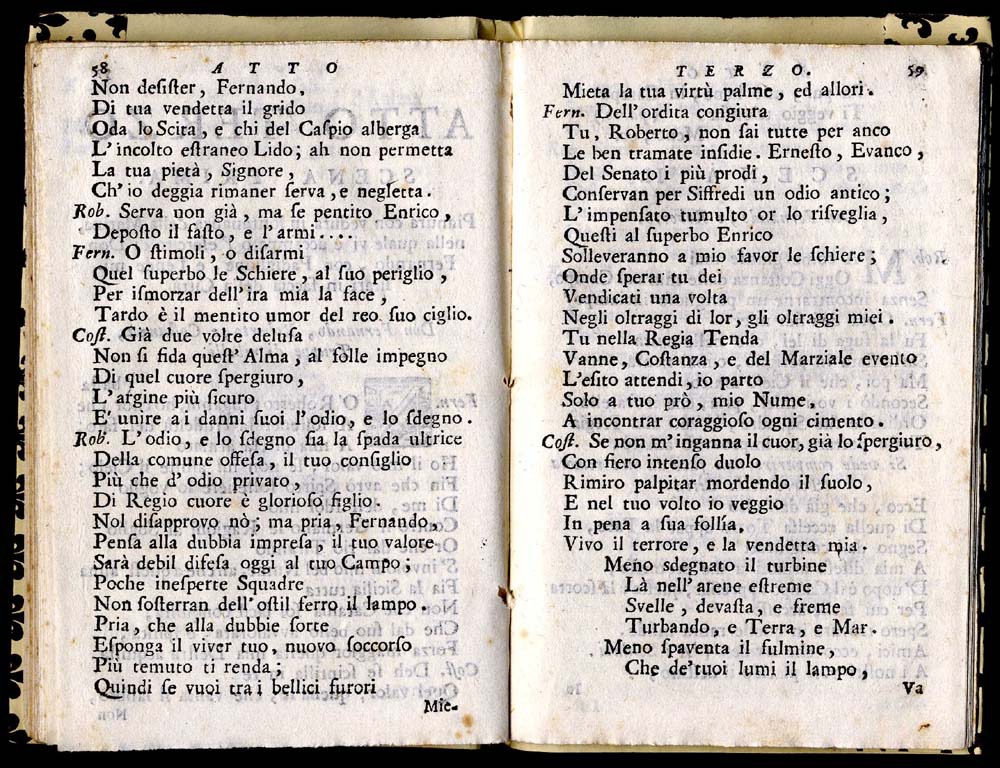 58 ATTO
Non desiſter, Fernando,
Di tua vendetta il grido
Oda lo Scita, e chi del Caſpio alberga
L'incolto eſtraneo Lido; ah non permetta
La tua pietà, Signore,
Ch'io deggia rimaner ſerva, e negletta.
Rob. Serva non già, ma ſe pentito Enrico,
Depoſto il faſto, e l'armi....
Fern. O ſtimoli, o diſarmi
Quel ſuperbo le Schiere, al ſuo periglio,
Per iſmorzar dell'ira mia la face,
Tardo è il mentito umor del reo ſuo ciglio.
Coſt. Già due volte deluſa
Non ſi fida queſt'Alma, al folle impegno
Di quel cuore ſpergiuro,
L'argine più ſicuro
E' unire a i danni ſuoi l'odio, e lo ſdegno.
Rob. L'odio, e lo ſdegno ſia la ſpada ultrice
Della comune offeſa, il tuo conſiglio
Più che d'odio privato,
Di Regio cuore è glorioſo figlio.
Nol diſapprovo nò; ma pria, Fernando,
Penſa alla dubbia impreſa, il tuo valore
Sarà debil difeſa oggi al tuo Campo;
Poche ineſperte Squadre
Non ſoſterran dell'oſtil ferro il lampo.
Pria, che alla dubbie ſorte
Eſponga il viver tuo, nuovo ſoccorſo
Più temuto ti renda;
Quindi ſe vuoi tra i bellici furori
Mie-
TERZO. 59
Mieta la tua virtù palme, ed allori.
Fern. Dell'ordita congiura
Tu, Roberto, non ſai tutte per anco
Le ben tramate inſidie. Erneſto, Evanco,
Del Senato i più prodi,
Conſervan per Siffredi un odio antico;
L'impenſato tumulto or lo riſveglia,
Queſti al ſuperbo Enrico
Solleveranno a mio favor le ſchiere;
Onde ſperar tu dei
Vendicati una volta
Negli oltraggi di lor, gli oltraggi miei.
Tu nella Regia Tenda
Vanne, Coſtanza, e del Marziale evento
L'eſito attendi, io parto
Solo a tuo prò, mio Nume,
A incontrar coraggioſo ogni cimento.
Coſt. Se non m'inganna il cuor, già lo ſpergiuro,
Con fiero intenſo duolo
Rimiro palpitar mordendo il ſuolo,
E nel tuo volto io veggio
In pena a ſua follìa,
Vivo il terrore, e la vendetta mia.
Meno sdegnato il turbine
Là nell'arene eſtreme
Svelle, devaſta, e freme
Turbando, e Terra, e Mar.
Meno ſpaventa il fulmine,
Che de'tuoi lumi il lampo,
Va